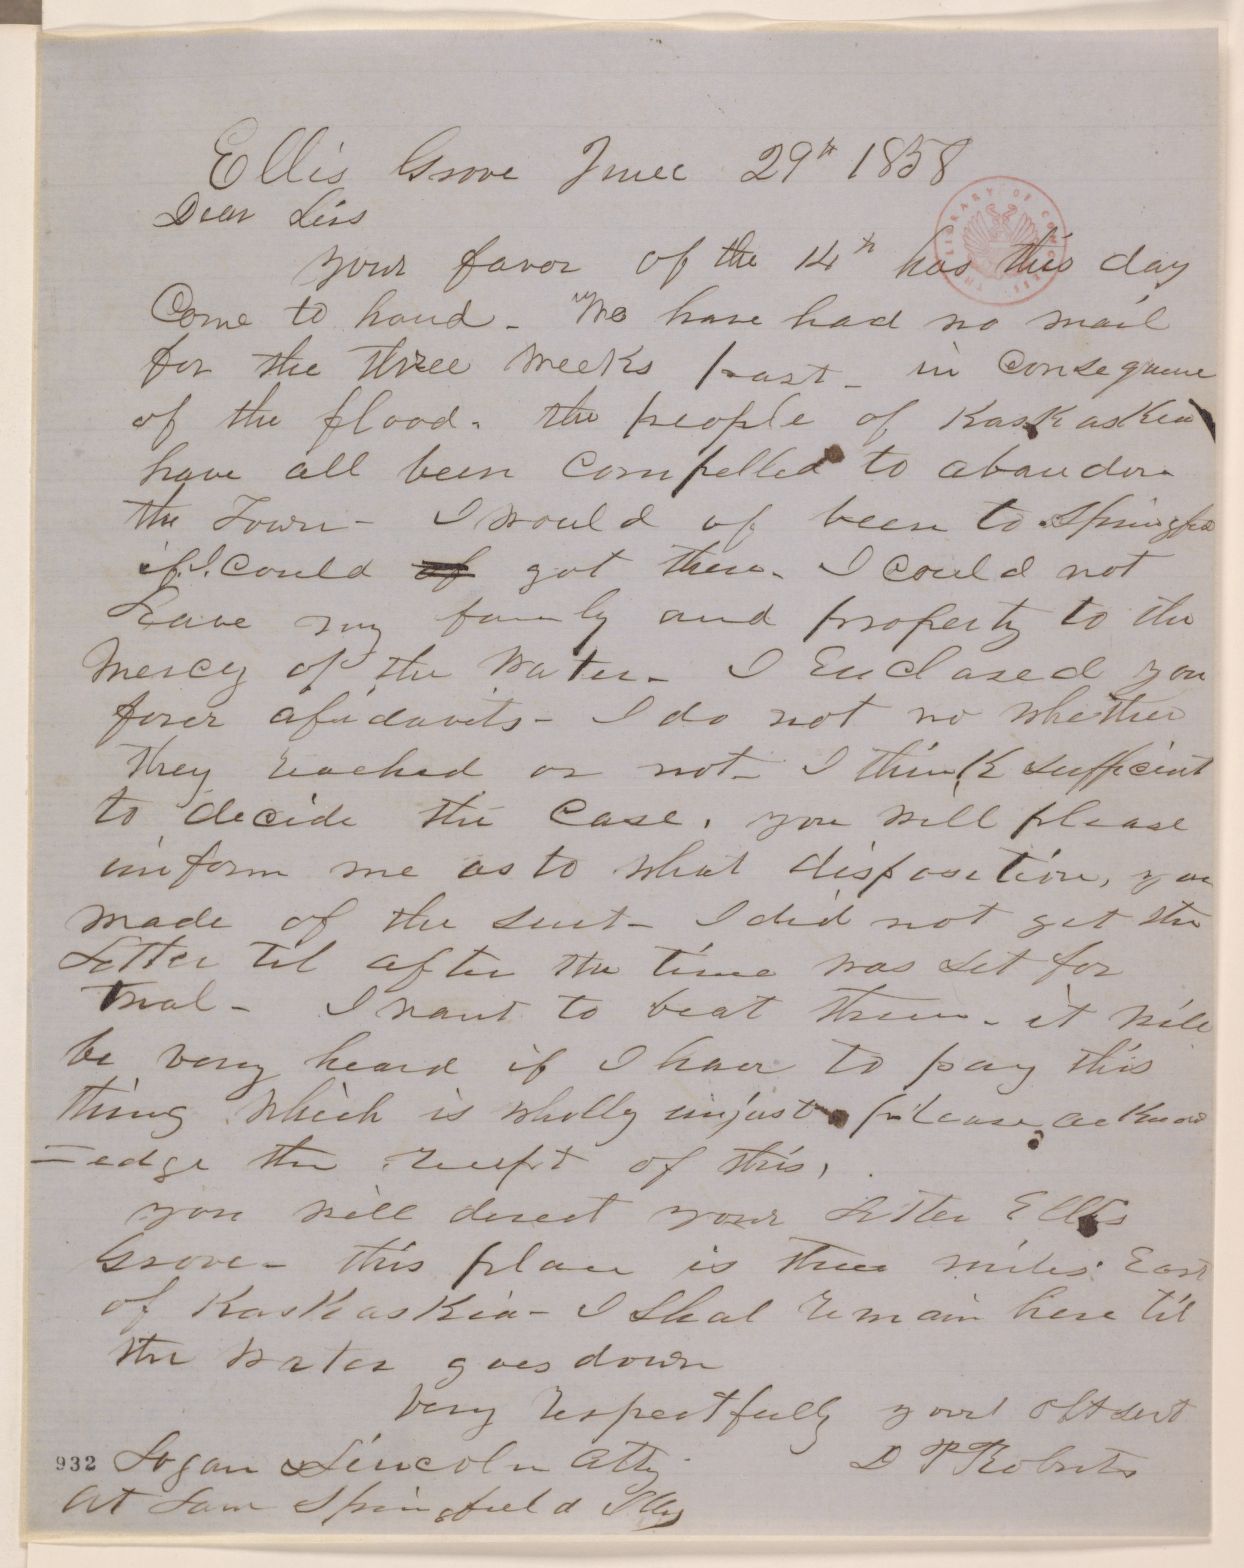 Ellis Grove June 29th 1858
Dear Sirs
your favor of the 14th has this day
Come to hand - We have had no mail
for the three weeks past - in consequence
of the flood. the people of Kaskaskia
have all been Compelled to abandon
the Town - I would of been to Springfield
if I could of got there. I could not
Leave my family and property to the
Mercy of the Water - I Enclosed you
four afidavits - I do not no whether
they reached or not - I think sufficient
to decide the Case. you will please
inform me as to what disposition, you
made of the suit - I did not get the
Letter til after the time was set for
Trial - I want to beat them - it will
be very heard if I have to pay this
thing which is wholly unjust - please acknowl
=edge the recept of this,
you will direct your Letter Ellis
Grove - this place is three miles East
of Kaskaskia - I Shal remain here til
the water goes down
Very respectfully your obt sert
D P Roberts
932 Logan & Lincoln Atty
At Law Springfield Ills
THE LIBRARY OF CONGRESS